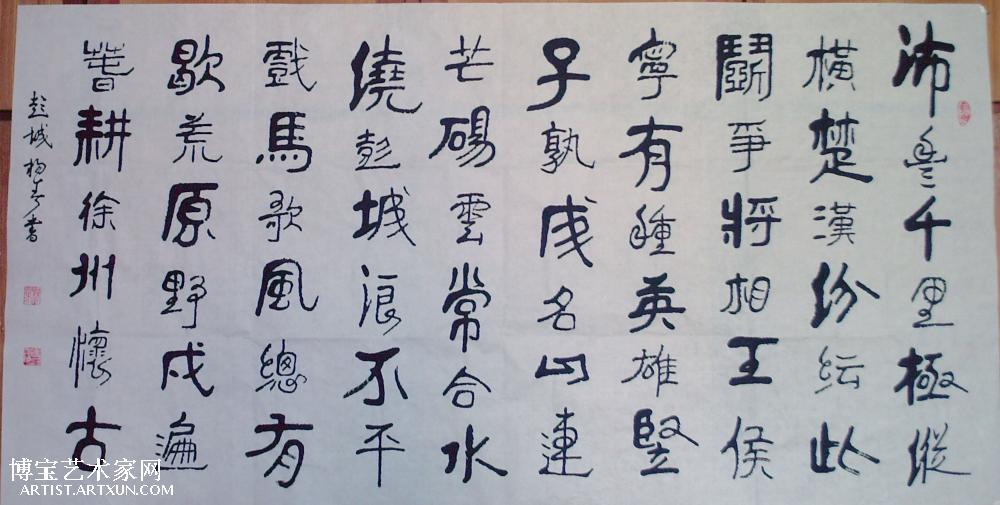 沛豐千里極縱
橫楚漢紛紜此
鬭爭將相王侯
寧有種英雄竪
子孰成名山連
芒碭雲常合水
繞彭城浪不平
戲馬歌風總有
歇荒原野戍遍
耕徐州懷古
彭城楊書
博宝艺术家网
ARTIST.ARTXUN.COM